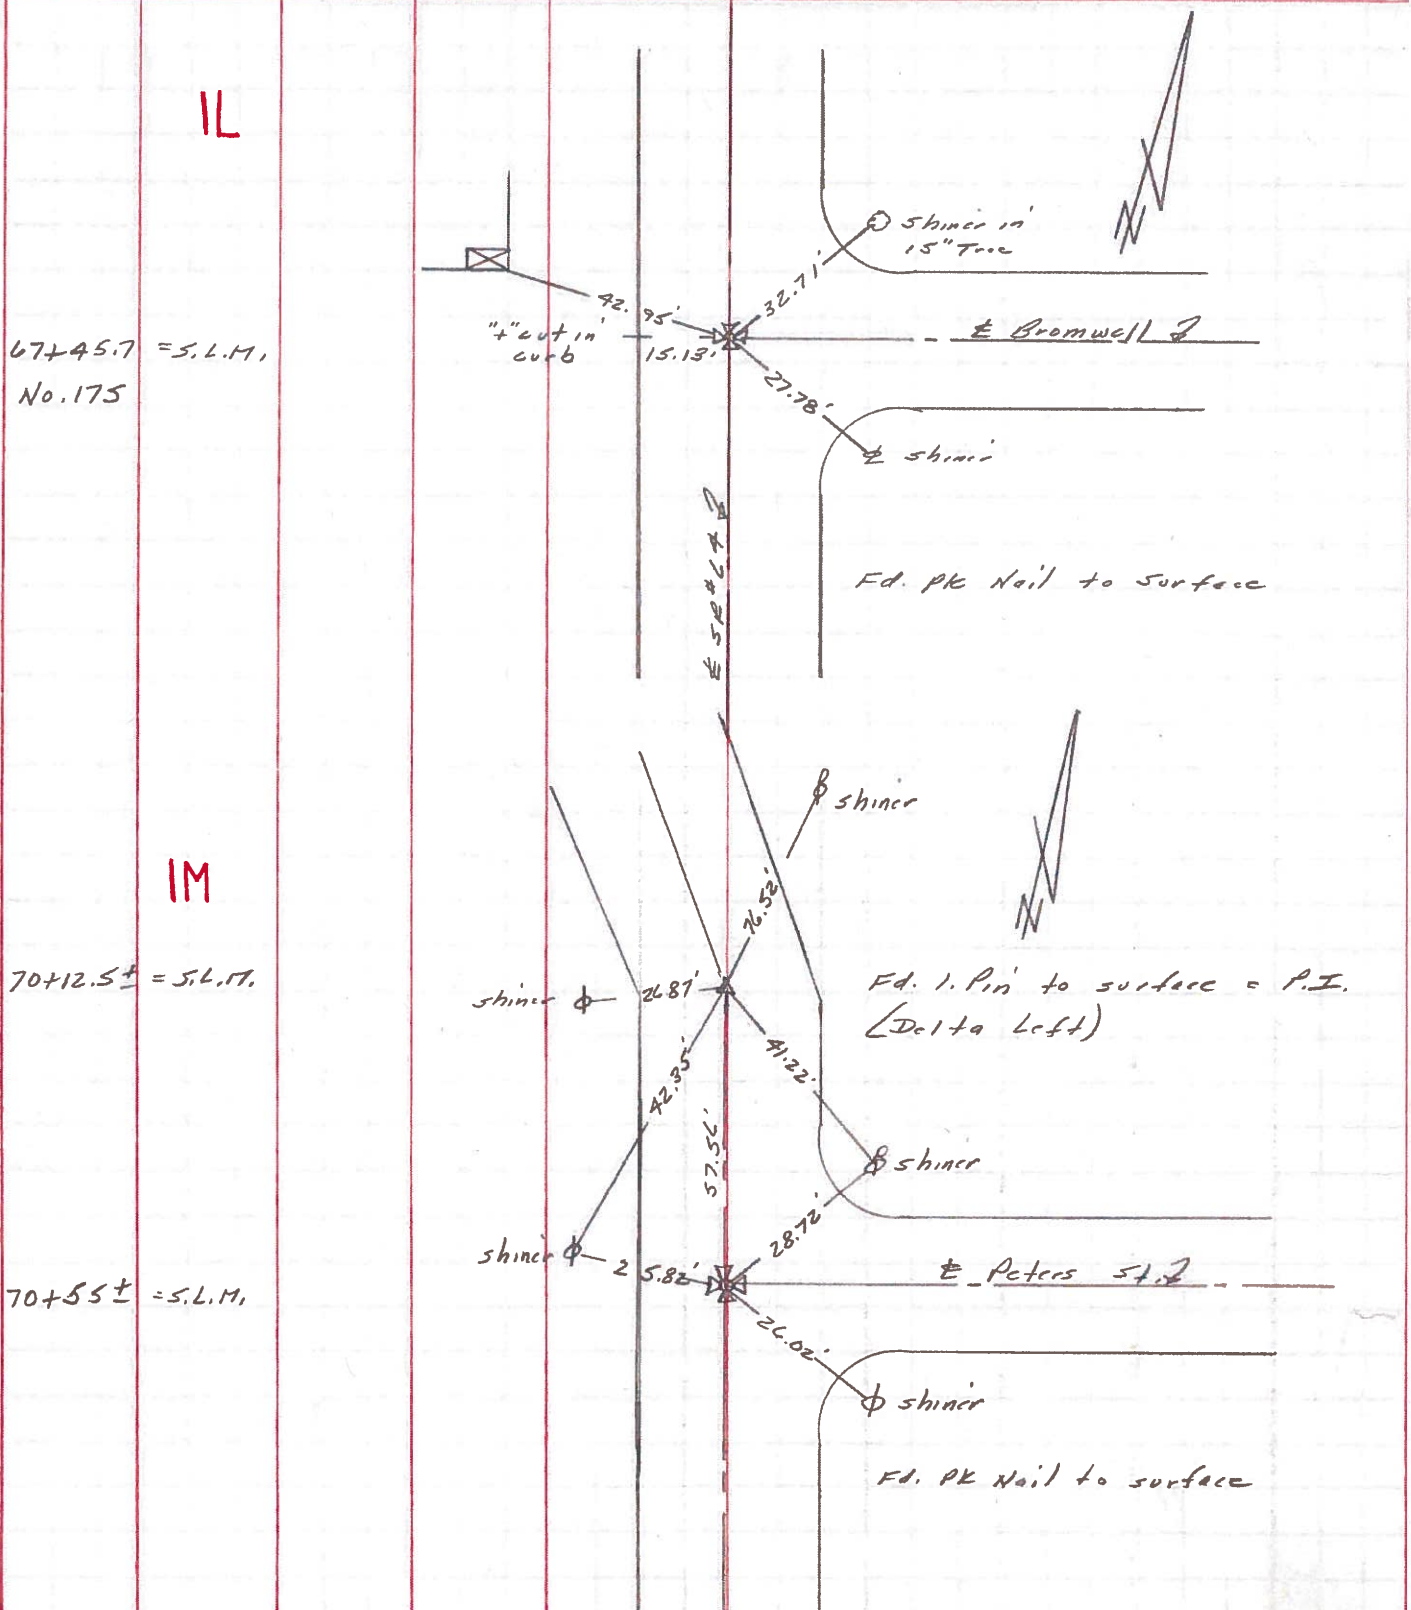 IL
shiner in
15" Tree
42.95'
32.71'
"+" cut in
curb
15.13'
℄ Bromwell
67+45.7 = S.L.M.
No. 175
27.78'
shiner
℄ SR #64
Fd. PK Nail to surface
shiner
IM
76.52'
70+12.5± = S.L.M.
shiner
26.87'
Fd. I. Pin to surface = P.I.
(Delta Left)
42.35'
41.22'
57.56'
shiner
28.72'
shiner
25.82'
℄ Peters St.
70+55± = S.L.M.
26.02'
shiner
Fd. PK Nail to surface
N
N